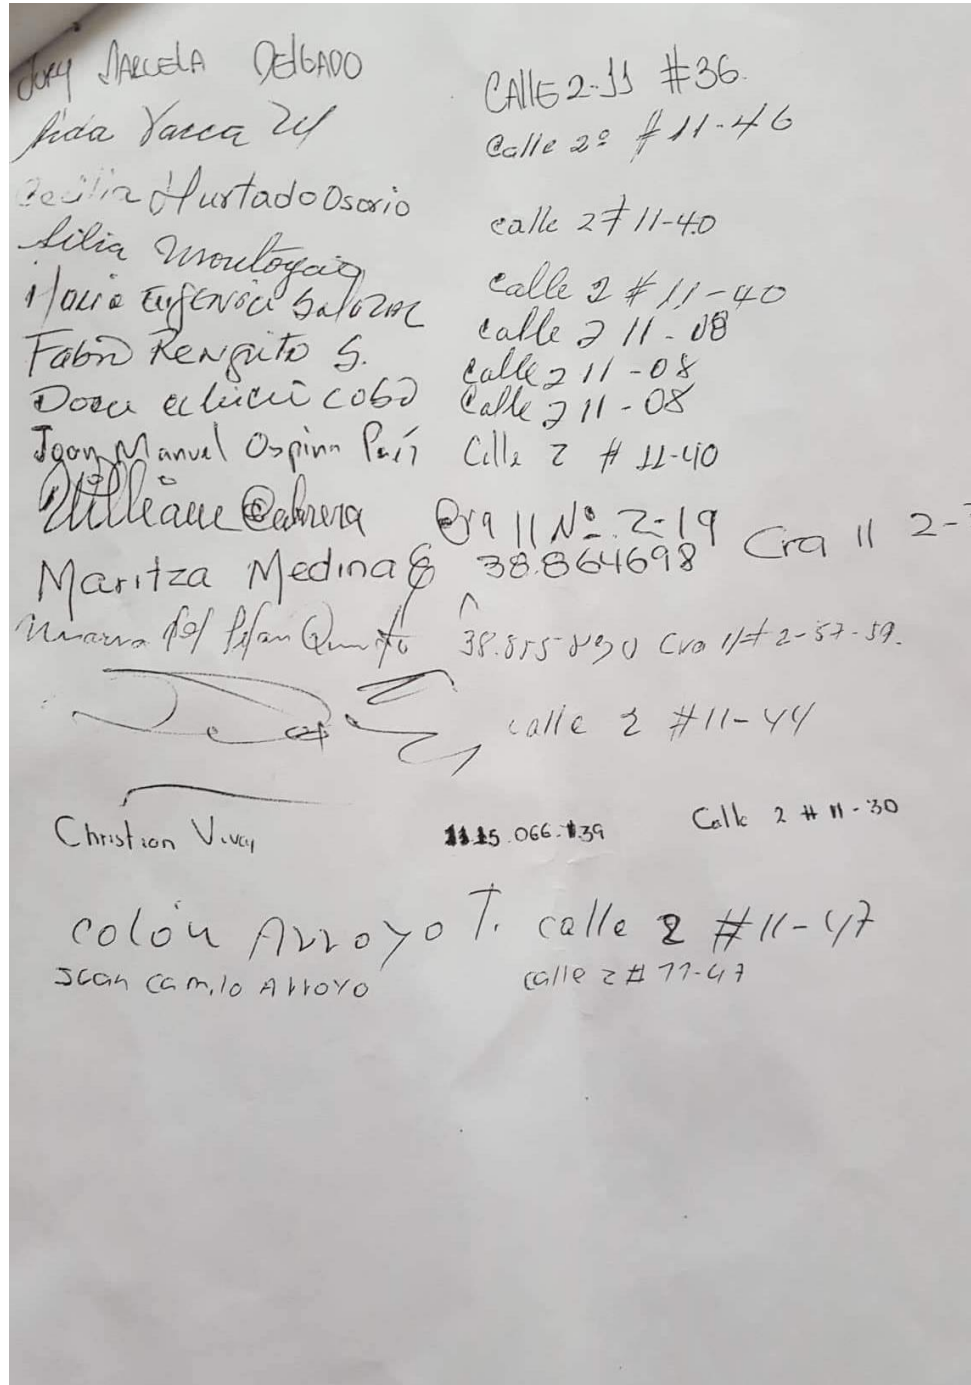 MARCELA DELGADO CALLE 2-11 #36.
Aida Vacca Calle 2º # 11-46
Cecilia Hurtado Osorio calle 2 # 11-40
Lilia Montoya calle 2 # 11-40
Maria Eugenia Salazar calle 2 11-08
Fabio Rengifo S. calle 2 11-08
cobo Calle 2 11-08
Manuel Ospina Calle 2 # 11-40
William Cabrera Cra 11 Nº 2-19
Maritza Medina 38.864698 Cra 11 2-
del Pilar Cra 11 # 2-57-59.
calle 2 #11-44
Christian 066. Calle 2 # 11-30
Colón Arroyo T. calle 2 #11-47
Juan Camilo Arroyo calle 2 # 11-47